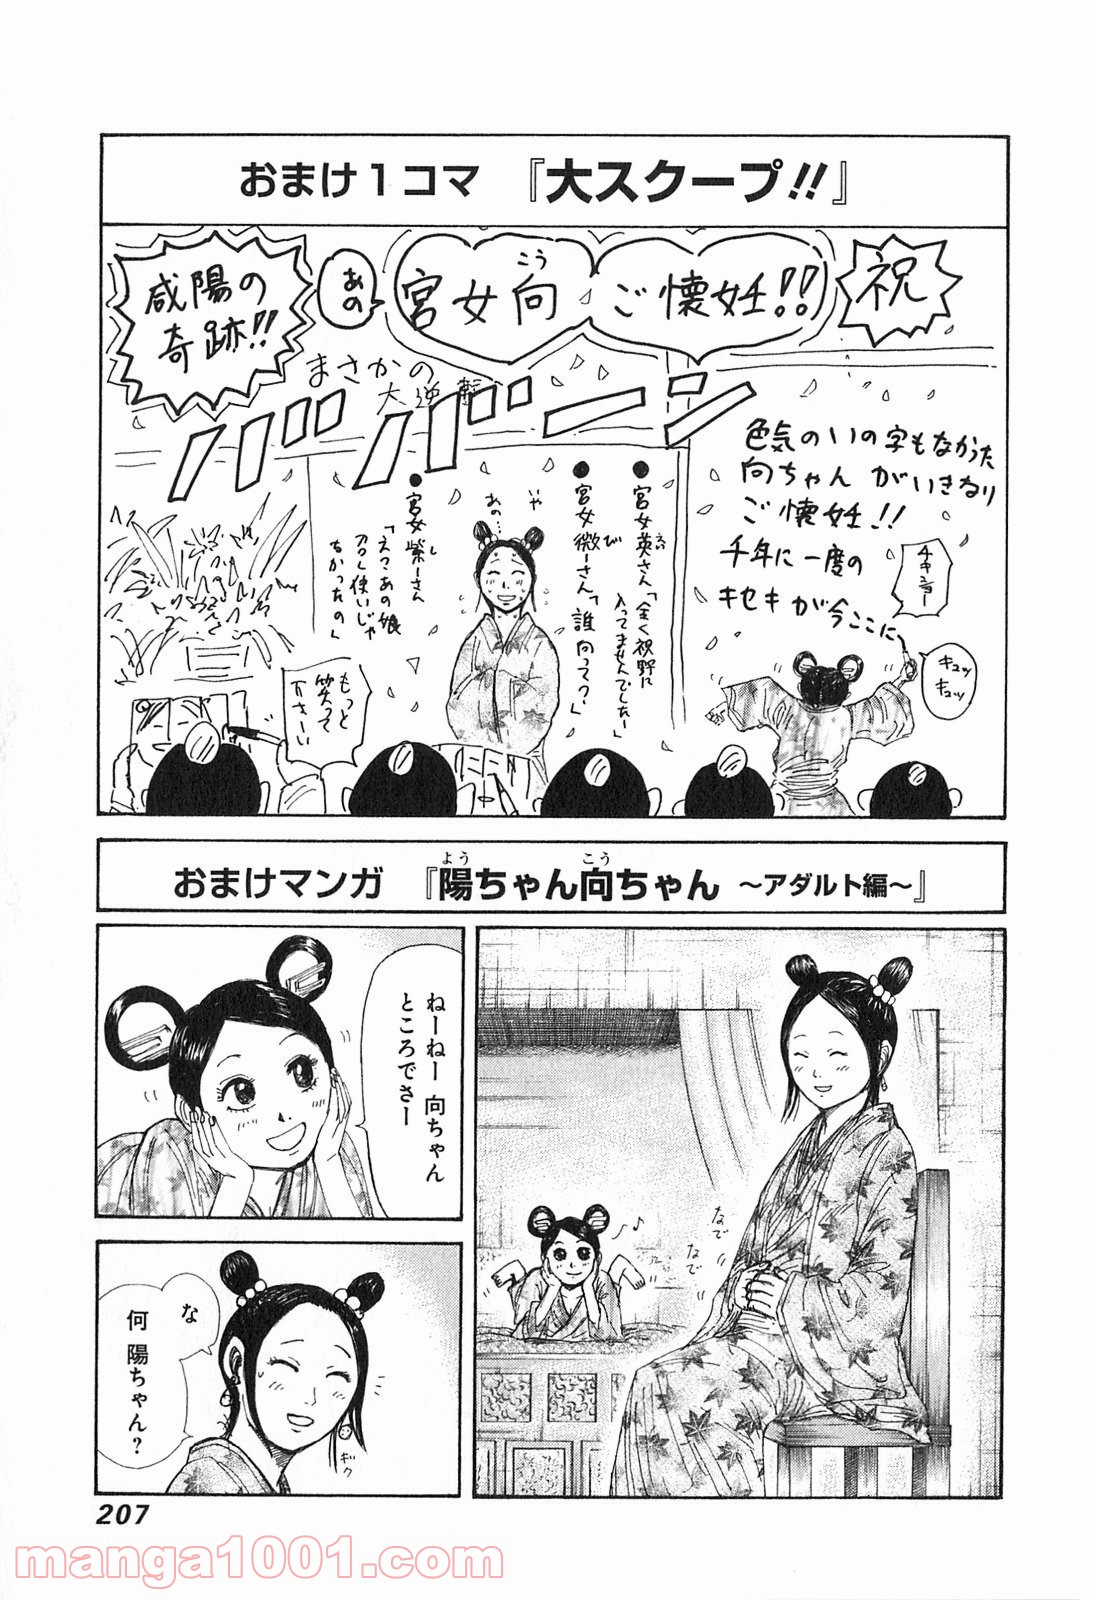 おまけ1コマ 『大スクープ!!』
祝
宮女向 ご懐妊!!
こう
あの
咸陽の
奇跡!!
まさかの
大逆襲
ババーーン
色気のいの字もなかった
向ちゃんがいきなり
ご懐妊!!
千年に一度の
キセキが今ここに
キュッ
キュッ
●宮女英さん「全く視野に
入ってませんでしたー」
●宮女微ーさん「誰 向って?」
いや
あの…
●宮女紫ーさん
「えっあの娘
召し使いじゃ
なかったの」
もっと
笑って
下さーい
おまけマンガ 『陽ちゃん向ちゃん ～アダルト編～』
よう
こう
なで
なで
♪♪
ねーねー 向ちゃん
ところでさー
な
何 陽ちゃん?
ギク
207
manga1001.com